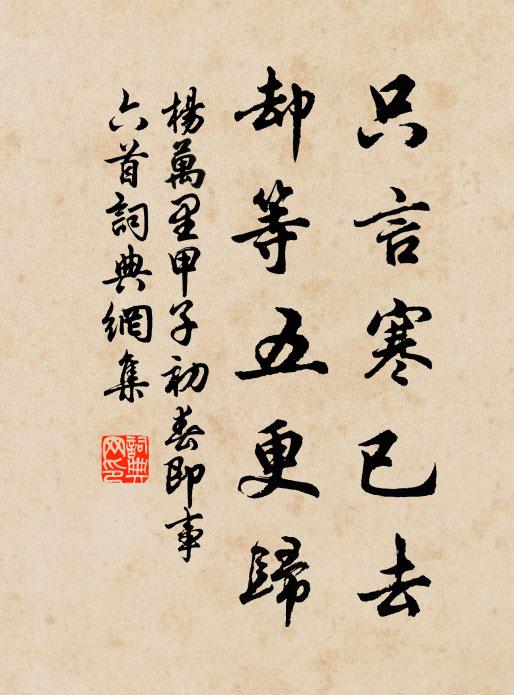 只言寒已去
却等五更歸
楊萬里甲子初春即事
六首詞典網集
詞典
网印